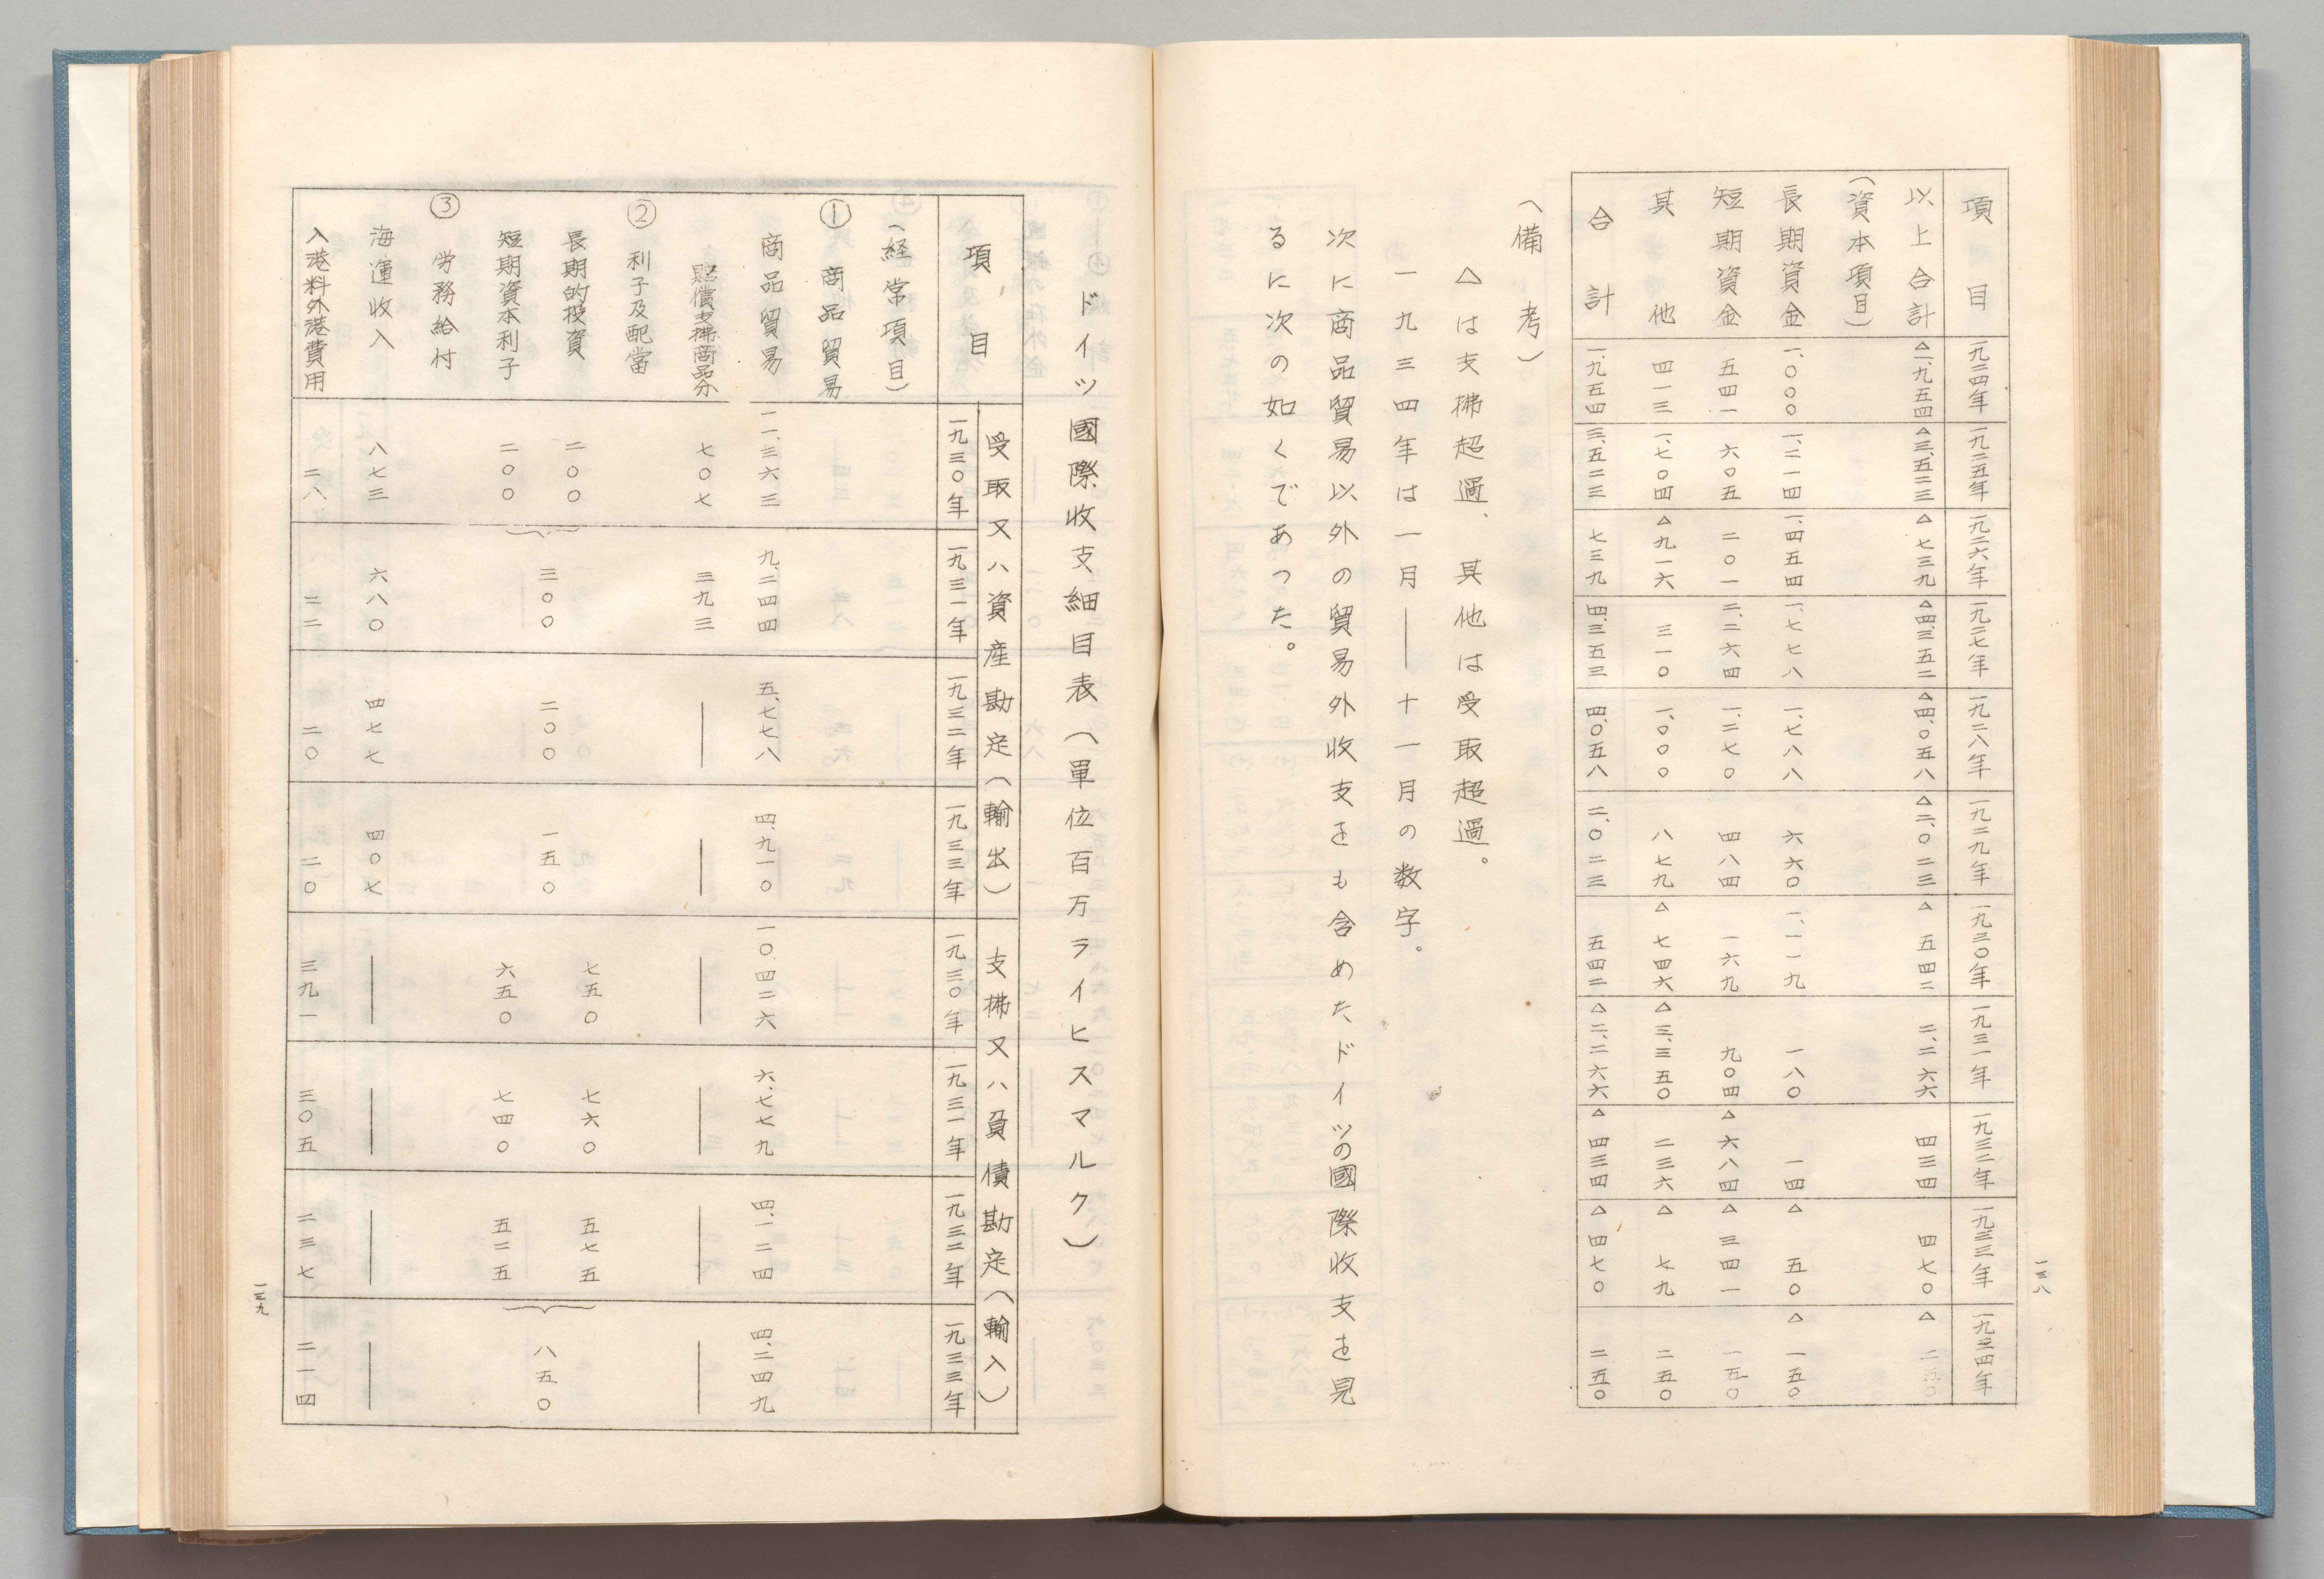 一三八
項目 一九二四年 一九二五年 一九二六年 一九二七年 一九二八年 一九二九年 一九三〇年 一九三一年 一九三二年 一九三三年 一九三四年
以上合計 △一、九五四 △三、五二三 △七三九 △四、三五二 △四、〇五八 △二、〇二三 △五四二 二、二六六 四三四 四七〇 △二五〇
（資本項目）
長期資金 一、〇〇〇 一、二一四 一、四五四 一、七七八 一、七八八 六六〇 一、一一九 一八〇 一四 △五〇 △一五〇
短期資金 五四一 六〇五 二〇一 二、二六四 一、二七〇 四八四 一六九 九〇四 △六八四 △三四一 一五〇
其他 四一三 一、七〇四 △九一六 三一〇 一、〇〇〇 八七九 △七四六 △三、三五〇 二三六 △七九 二五〇
合計 一、九五四 三、五二三 七三九 四、三五三 四、〇五八 二、〇二三 五四二 △二、二六六 △四三四 △四七〇 二五〇
（備考）
△は支拂超過、其他は受取超過。
一九三四年は一月——十一月の数字。
次に商品貿易以外の貿易外收支をも含めた、ドイツの國際收支を見
るに次の如くであった。
ドイツ國際收支細目表（單位百万ライヒスマルク）
項目 受取又ハ資産勘定（輸出） 支拂又ハ負債勘定（輸入）
一九三〇年 一九三一年 一九三二年 一九三三年 一九三〇年 一九三一年 一九三二年 一九三三年
（経常項目）
① 商品貿易
商品貿易 一一、三六三 九、二四四 五、七七八 四、九一〇 一〇、四二六 六、七七九 四、一二四 四、二四九
賠償支拂商品分 七〇七 三九三 — — — — — —
② 利子及配當
長期的投資 二〇〇 七五〇 七六〇 五七五
短期資本利子 二〇〇 三〇〇 二〇〇 一五〇 六五〇 七四〇 五二五 八五〇
③ 労務給付
海運收入 八七三 六八〇 四七七 四〇七 — — — —
入港料外港費用 二八 二二 二〇 二〇 三九一 三〇五 二三七 二一四
一三九